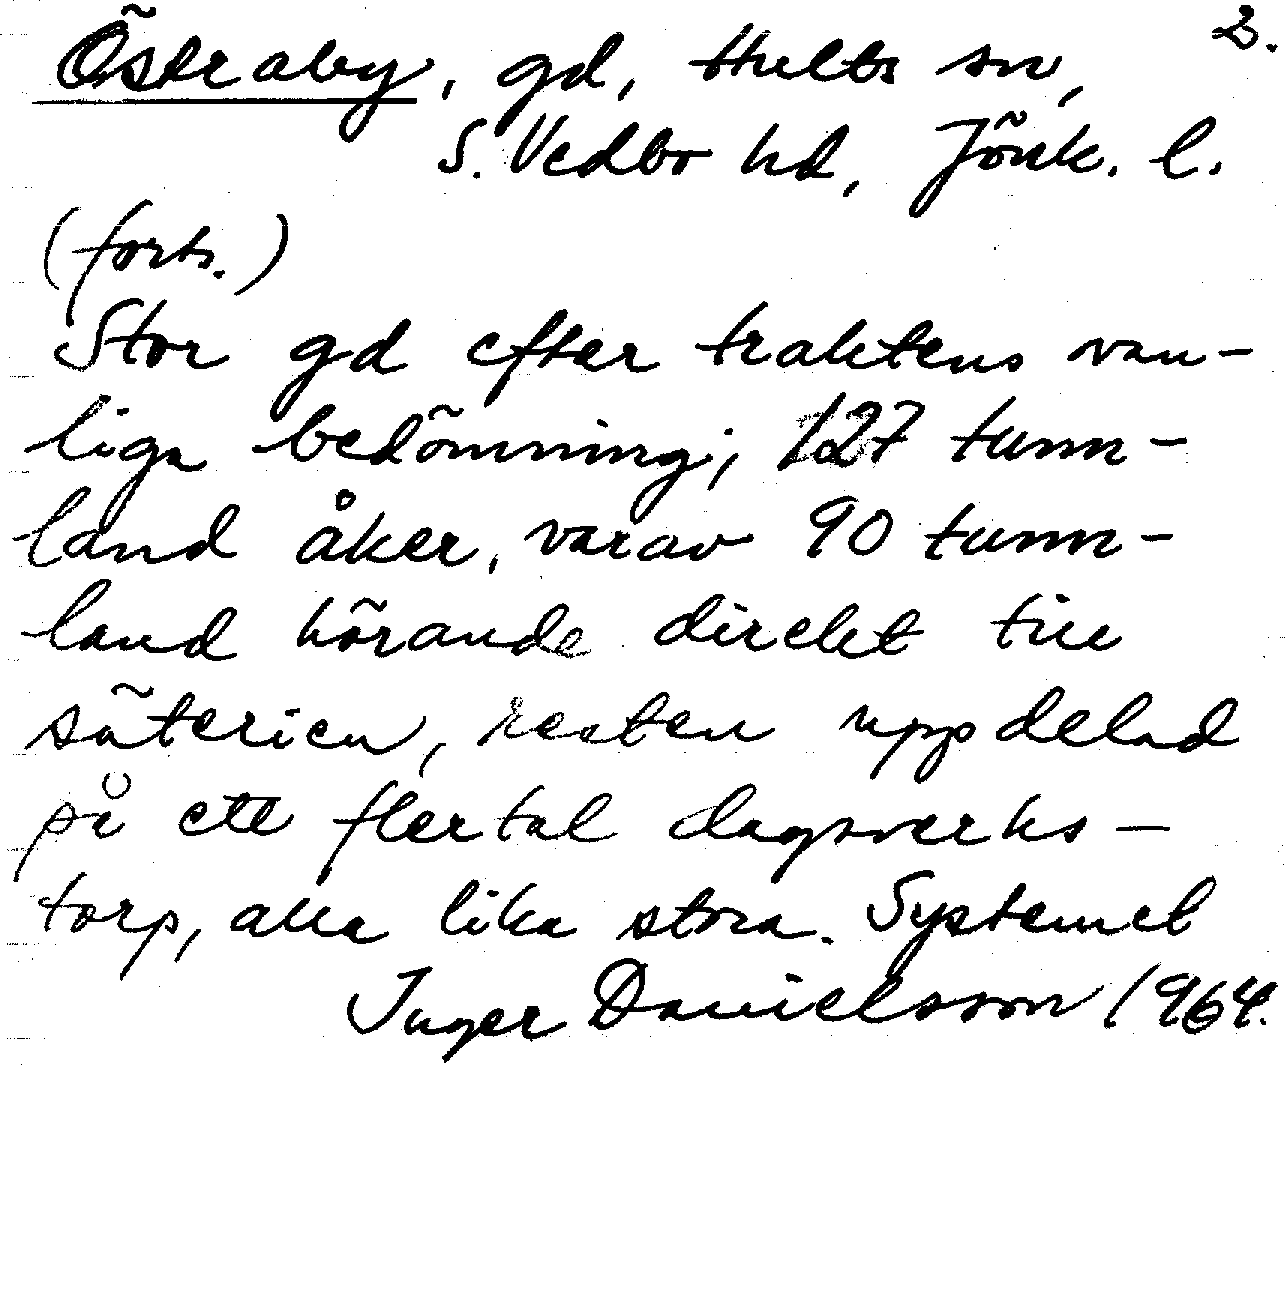 Östraby, gd, Hults sn, 2.
S. Vedbo hd, Jönk. l.
(forts.)
Stor gd efter traktens van-
liga bedömning; 127 tunn-
land åker, varav 90 tunn-
land hörande direkt till
säterien, resten uppdelad
på ett flertal dagsverks-
torp, alla lika stora. Systemet
Inger Danielsson 1964.